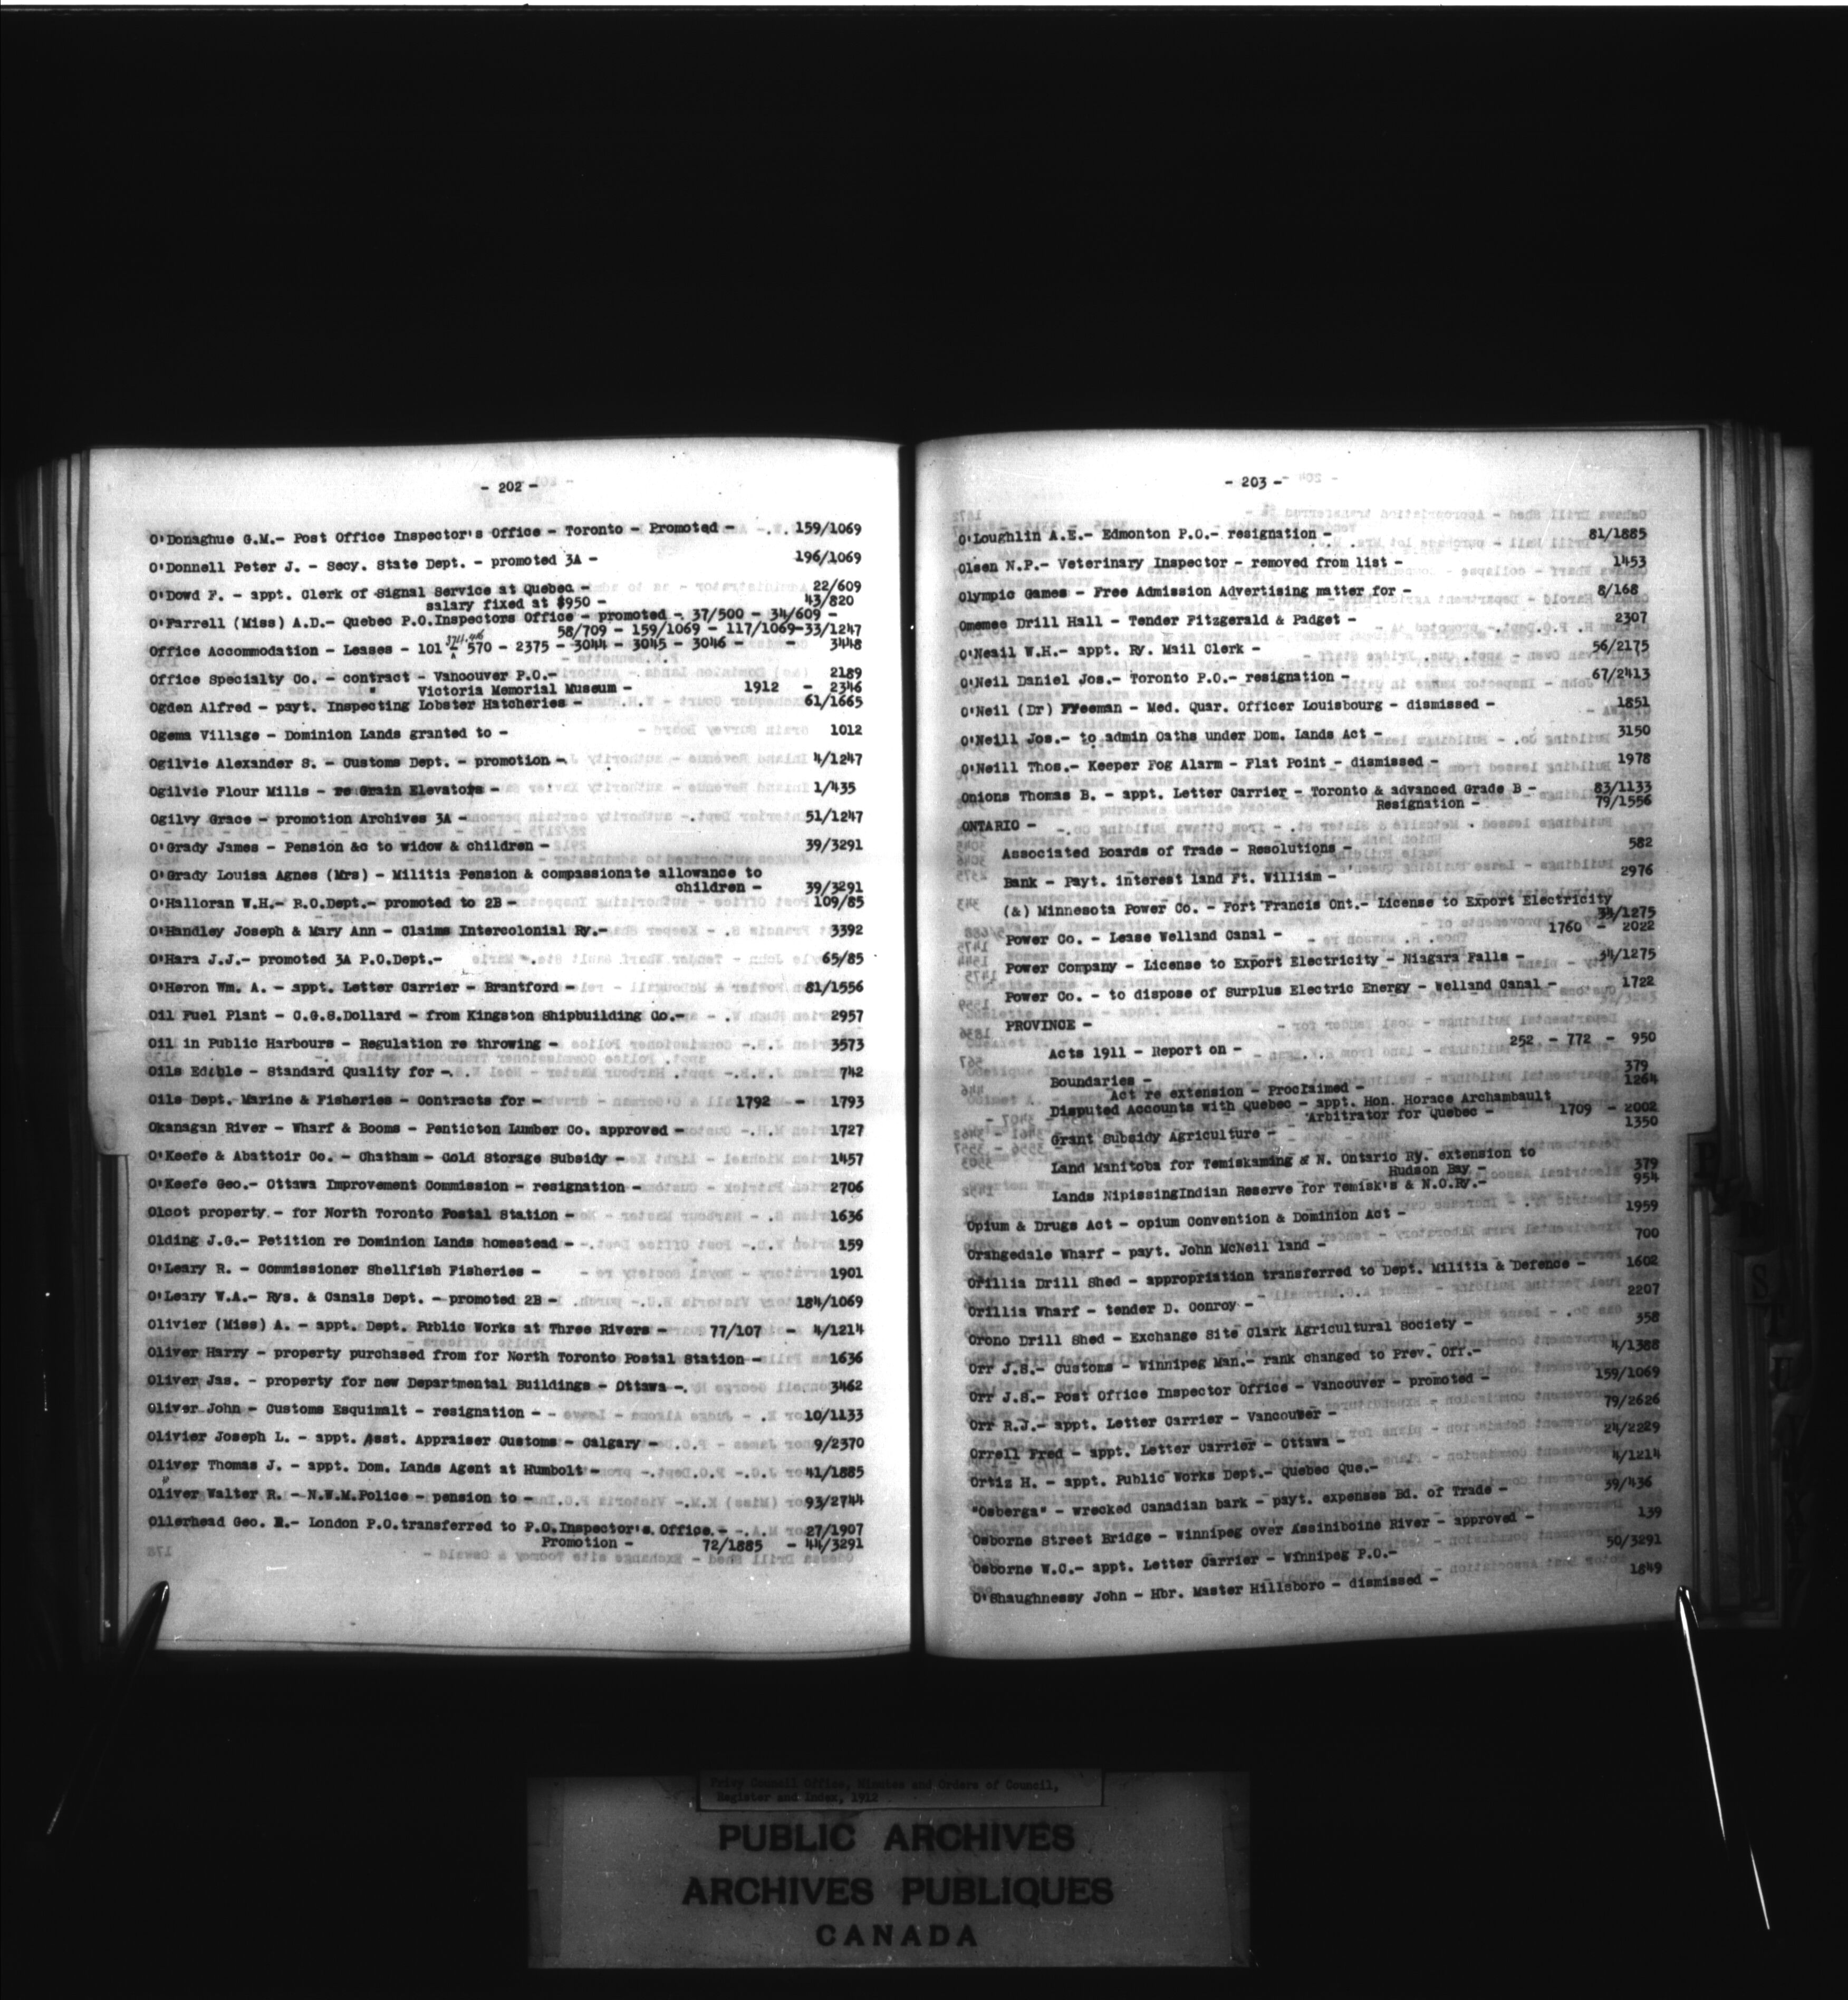 - 202 -
O'Donaghue G.M.- Post Office Inspector's Office - Toronto - Promoted - 159/1069
O'Donnell Peter J. - Secy. State Dept. - promoted 3A - 196/1069
O'Dowd F. - appt. Clerk of Signal Service at Quebec - 22/609
salary fixed at $950 - 43/820
O'Farrell (Miss) A.D.- Quebec P.O.Inspectors Office - promoted - 37/500 - 34/609 -
58/709 - 159/1069 - 117/1069-33/1247
Office Accommodation - Leases - 101 - 570 - 2375 - 3044 - 3045 - 3046 - - 3448
Office Specialty Co. - contract - Vancouver P.O.- 2189
" Victoria Memorial Museum - 1912 - 2346
Ogden Alfred - payt. Inspecting Lobster Hatcheries - 61/1665
Ogema Village - Dominion Lands granted to - 1012
Ogilvie Alexander S. - Customs Dept. - promotion - 4/1247
Ogilvie Flour Mills - re Grain Elevators - 1/435
Ogilvy Grace - promotion Archives 3A - 51/1247
O'Grady James - Pension &c to widow & children - 39/3291
O'Grady Louisa Agnes (Mrs) - Militia Pension & compassionate allowance to
children - 39/3291
O'Halloran W.H.- R.O.Dept.- promoted to 2B - 109/85
O'Handley Joseph & Mary Ann - Claims Intercolonial Ry.- 3392
O'Hara J.J.- promoted 3A P.O.Dept.- 65/85
O'Heron Wm. A. - appt. Letter Carrier - Brantford - 81/1556
Oil Fuel Plant - C.G.S.Dollard - from Kingston Shipbuilding Co.- 2957
Oil in Public Harbours - Regulation re throwing - 3573
Oils Edible - Standard Quality for - 742
Oils Dept. Marine & Fisheries - Contracts for - 1792 - 1793
Okanagan River - Wharf & Booms - Penticton Lumber Co. approved - 1727
O'Keefe & Abattoir Co. - Chatham - Cold Storage Subsidy - 1457
O'Keefe Geo.- Ottawa Improvement Commission - resignation - 2706
Olcot property - for North Toronto Postal Station - 1636
Olding J.G.- Petition re Dominion Lands homestead - 159
O'Leary R. - Commissioner Shellfish Fisheries - 1901
O'Leary W.A.- Rys. & Canals Dept. - promoted 2B - 184/1069
Olivier (Miss) A. - appt. Dept. Public Works at Three Rivers - 77/107 - 4/1214
Oliver Harry - property purchased from for North Toronto Postal Station - 1636
Oliver Jas. - property for new Departmental Buildings - Ottawa - 3462
Oliver John - Customs Esquimalt - resignation - 10/1133
Olivier Joseph L. - appt. Asst. Appraiser Customs - Calgary - 9/2370
Oliver Thomas J. - appt. Dom. Lands Agent at Humbolt - 41/1885
Oliver Walter R. - N.W.M.Police - pension to - 93/2744
Ollerhead Geo. E.- London P.O.transferred to P.O.Inspector's Office - 27/1907
Promotion - 72/1885 - 44/3291
- 203 -
O'Loughlin A.E.- Edmonton P.O.- resignation - 81/1885
Olsen N.P.- Veterinary Inspector - removed from list - 1453
Olympic Games - Free Admission Advertising matter for - 8/168
Omemee Drill Hall - Tender Fitzgerald & Padget - 2307
O'Neail W.H.- appt. Ry. Mail Clerk - 56/2175
O'Neil Daniel Jos.- Toronto P.O.- resignation - 67/2413
O'Neil (Dr) Freeman - Med. Quar. Officer Louisbourg - dismissed - 1851
O'Neill Jos.- to admin Oaths under Dom. Lands Act - 3150
O'Neill Thos.- Keeper Fog Alarm - Flat Point - dismissed - 1978
Onions Thomas B. - appt. Letter Carrier - Toronto & advanced Grade B - 83/1133
Resignation - 79/1556
ONTARIO -
Associated Boards of Trade - Resolutions - 582
Bank - Payt. interest land Ft. William - 2976
(&) Minnesota Power Co. - Fort Francis Ont.- License to Export Electricity
33/1275
Power Co. - Lease Welland Canal - 1760 - 2022
Power Company - License to Export Electricity - Niagara Falls - 34/1275
Power Co. - to dispose of Surplus Electric Energy - Welland Canal - 1722
PROVINCE -
Acts 1911 - Report on - 252 - 772 - 950
Boundaries - 379
Act re extension - Proclaimed - 1264
Disputed Accounts with Quebec - appt. Hon. Horace Archambault
Arbitrator for Quebec - 1709 - 2002
Grant Subsidy Agriculture - 1350
Land Manitoba for Temiskaming & N. Ontario Ry. extension to
Hudson Bay - 379
Lands NipissingIndian Reserve for Temisk's & N.O.Ry.- 954
Opium & Drugs Act - opium Convention & Dominion Act - 1959
Orangedale Wharf - payt. John McNeil land - 700
Orillia Drill Shed - appropriation transferred to Dept. Militia & Defence - 1602
Orillia Wharf - tender D. Conroy - 2207
Orono Drill Shed - Exchange Site Clark Agricultural Society - 358
Orr J.S.- Customs - Winnipeg Man.- rank changed to Prev. Off.- 4/1388
Orr J.S.- Post Office Inspector Office - Vancouver - promoted - 159/1069
Orr R.J.- appt. Letter Carrier - Vancouver - 79/2626
Orrell Fred - appt. Letter Carrier - Ottawa - 24/2229
Ortiz H. - appt. Public Works Dept.- Quebec Que.- 4/1214
"Osberga" - wrecked Canadian bark - payt. expenses Bd. of Trade - 39/436
Osborne Street Bridge - Winnipeg over Assiniboine River - approved - 139
Osborne W.C.- appt. Letter Carrier - Winnipeg P.O.- 50/3291
O'Shaughnessy John - Hbr. Master Hillsboro - dismissed - 1849
Privy Council Office, Minutes and Orders of Council,
Register and Index, 1912
PUBLIC ARCHIVES
ARCHIVES PUBLIQUES
CANADA